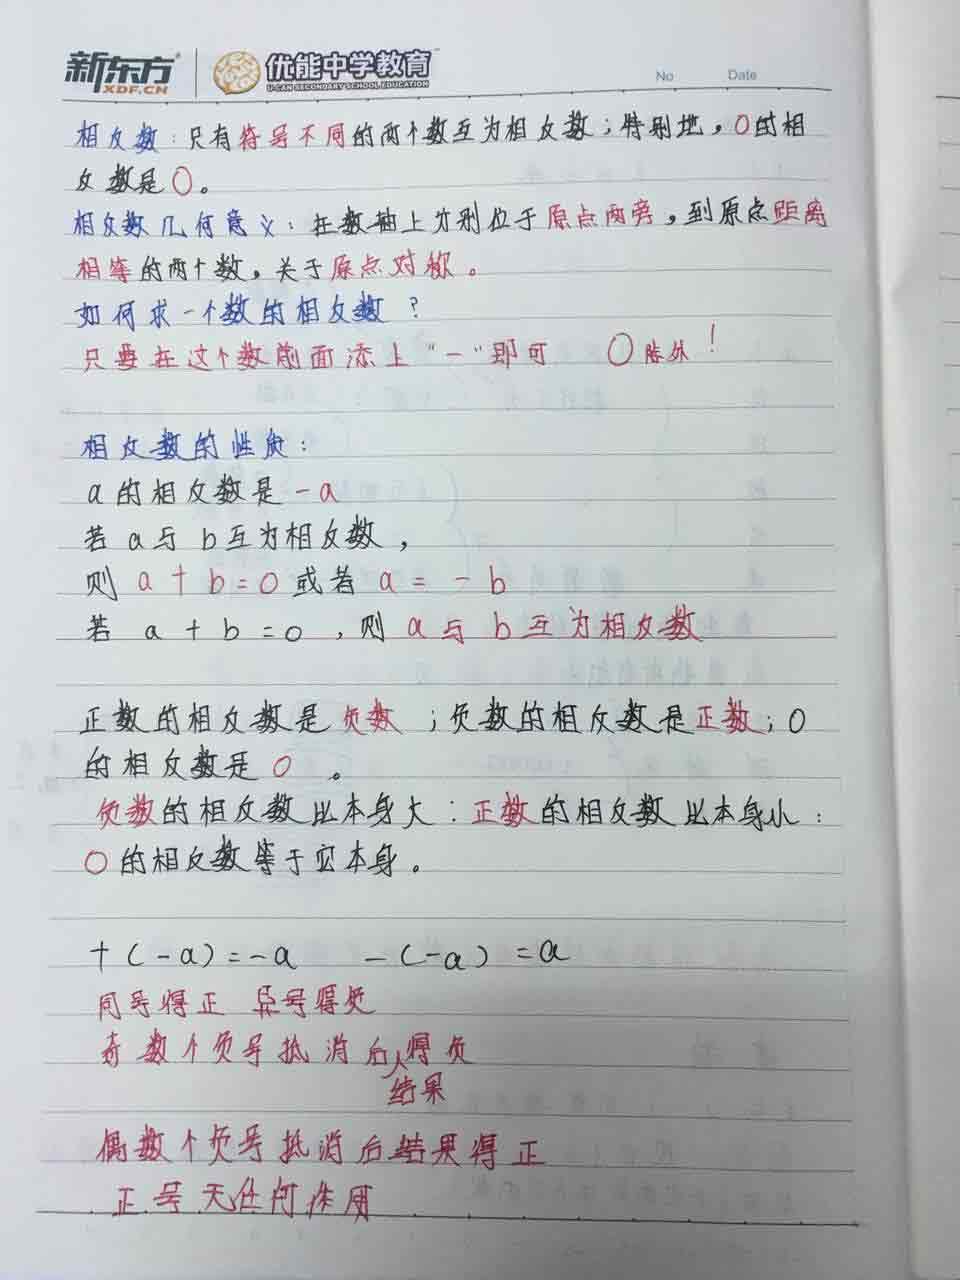 新东方 XDF.CN 优能中学教育 U-CAN SECONDARY SCHOOL EDUCATION No Date
相反数：只有符号不同的两个数互为相反数；特别地，0的相
反数是0。
相反数几何意义：在数轴上分别位于原点两旁，到原点距离
相等的两个数，关于原点对称。
如何求一个数的相反数？
只要在这个数前面添上“－”即可 0除外！
相反数的性质：
a的相反数是－a
若a与b互为相反数，
则a＋b＝0或者a＝－b
若a＋b＝0，则a与b互为相反数
正数的相反数是负数；负数的相反数是正数；0
的相反数是0。
负数的相反数比本身大：正数的相反数比本身小：
0的相反数等于它本身。
＋(－a)＝－a －(－a)＝a
同号得正 异号得负
奇数个负号抵消后得负
结果
偶数个负号抵消后结果得正
正号无任何作用